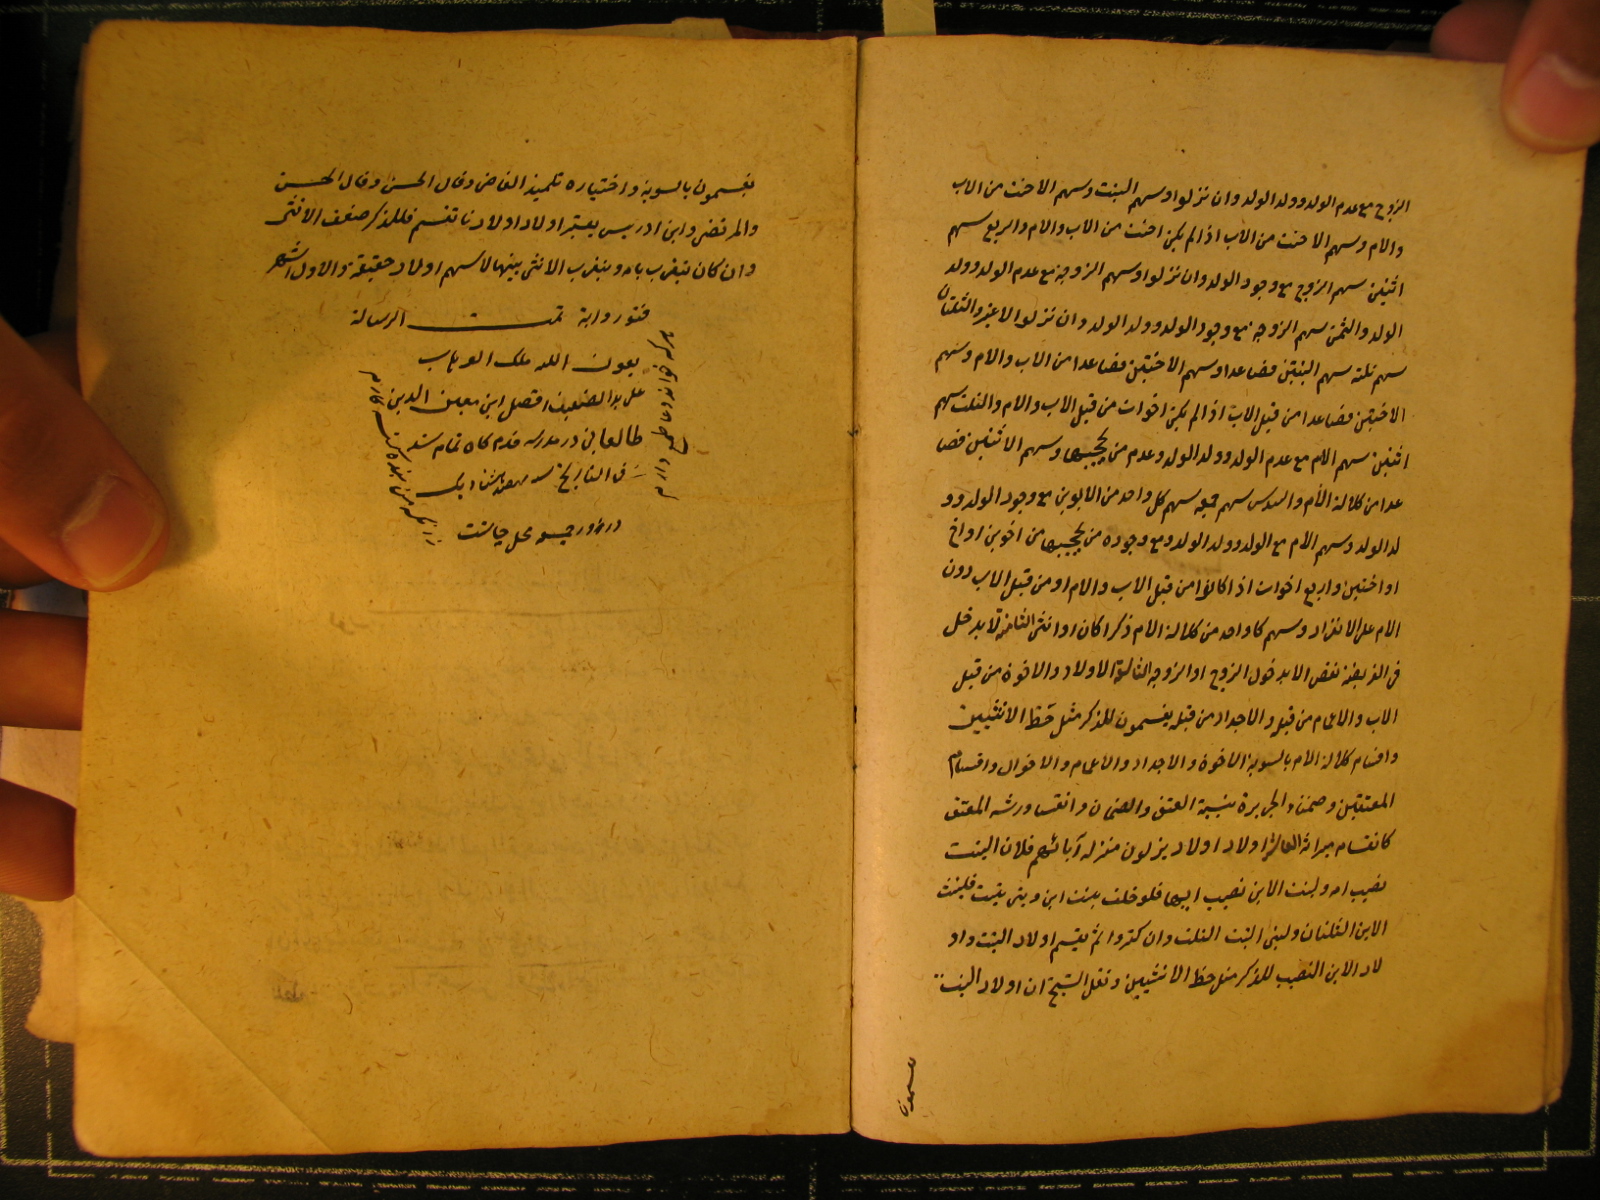 الزوج مع عدم الولد وولد الولد وان نزلوا وسهم البنت وسهم الاخت من الاب
والام وسهم الاخت من الاب اذا لم يكن اخت من الاب والام والربع سهم
اثنين سهم الزوج مع وجود الولد وان نزلوا وسهم الزوجة مع عدم الولد وولد
الولد والثمن سهم الزوجه مع وجود الولد وولد الولد وان نزلوا لا غير والثلثان
سهم ثلثه سهم البنتين فصاعدا وسهم الاختين فصاعدا من الاب والام وسهم
الاختين فصاعدا من قبل الاب اذا لم يكن اخوات من قبل الاب والام والثلث سهم
اثنين سهم الام مع عدم الولد وولد الولد وعدم من يحجبها وسهم الاثنين فصا
عدا من كلالة الأم والسدس سهم خمسه سهم كل واحد من الابوين مع وجود الولد وو
لد الولد وسهم الأم مع الولد وولد الولد ومع وجوده من يحجبها من اخوين او اخ
او اختين او اربع اخوات اذا كانوا من قبل الاب والام او من قبل الاب دون
الام على الانفراد وسهم كل واحد من كلالة الام ذكرا كان او انثى الثامنة لا يدخل
فى الفريضة نقص الا بدخول الزوج او الزوجه الثالثة الاولاد والاخوة من قبل
الاب والاعمام من قبله والاجداد من قبله يقسمون للذكر مثل حَظ الانثيين
واقسام كلالة الام بالسوية الاخوة والاجداد والاعمام والاخوال واقسام
المعتقين وضمناء الجريرة بنسبة العتق والضمان وانقسا ورثه المعتق
كانقسام ميراثه العاشر اولاد اولاد ينزلون منزله آبائهم فلابن البنت
نصيب امه ولبنت الابن نصيب ابيها فلو خلف بنت ابن وبنى بنت فلبنت
الابن الثلثان ولبنى البنت الثلث وان كثروا ثم يقسم اولاد البنت واو
لاد الابن النصيب للذكر مثل حظ الانثيين ونقل الشيخ ان اولاد البنت
يقسمون
يقسمون بالسوية واختياره تلميذ القاضى وقال الحسن وقال الحسن
والمرتضى وابن ادريس يعتبر اولاد اولادنا تقسم فللذكر ضعف الانثى
وان كان يتقرب بام ويتقرب الانثى بينها لاسهم اولاد حقيقة والاول اشهر
فتور رواية تمت الرسالة
بعون الله ملك الوهاب
على يد الضعيف افضل ابن معين الدين
طالعانى در مدرسه قدم كاه تمام شد
فى التاريخ سنه
در روز جمعه محل چاشت
هر كه خواند دعا طمع دارم
زانكه من بنده گنه كارم